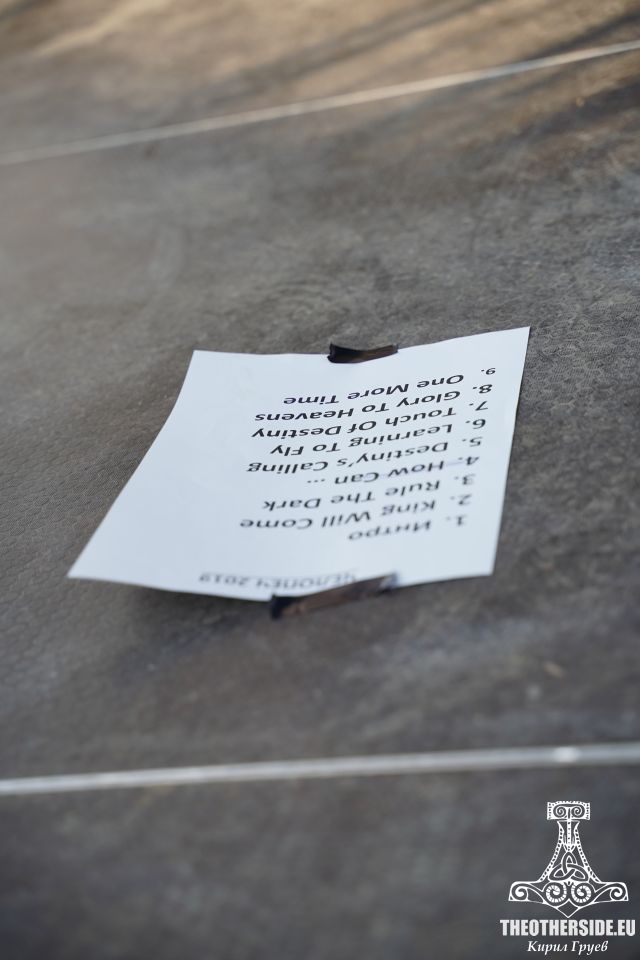 ЧЕЛОПЕЧ 2019
1. Интро
2. King Will Come
3. Rule The Dark
4. How Can ...
5. Destiny's Calling
6. Learning To Fly
7. Touch Of Destiny
8. Glory To Heavens
9. One More Time
THEOTHERSIDE.EU
Кирил Груев